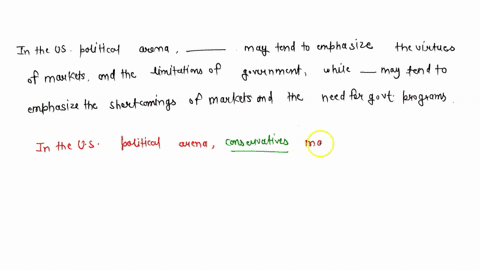 In the US. political arena, ____ may tend to emphasize the virtues
of markets, and the limitations of government, while __ may tend to
emphasize the shortcomings of markets and the need for govt. programs.
In the U.S. political arena, conservatives ma